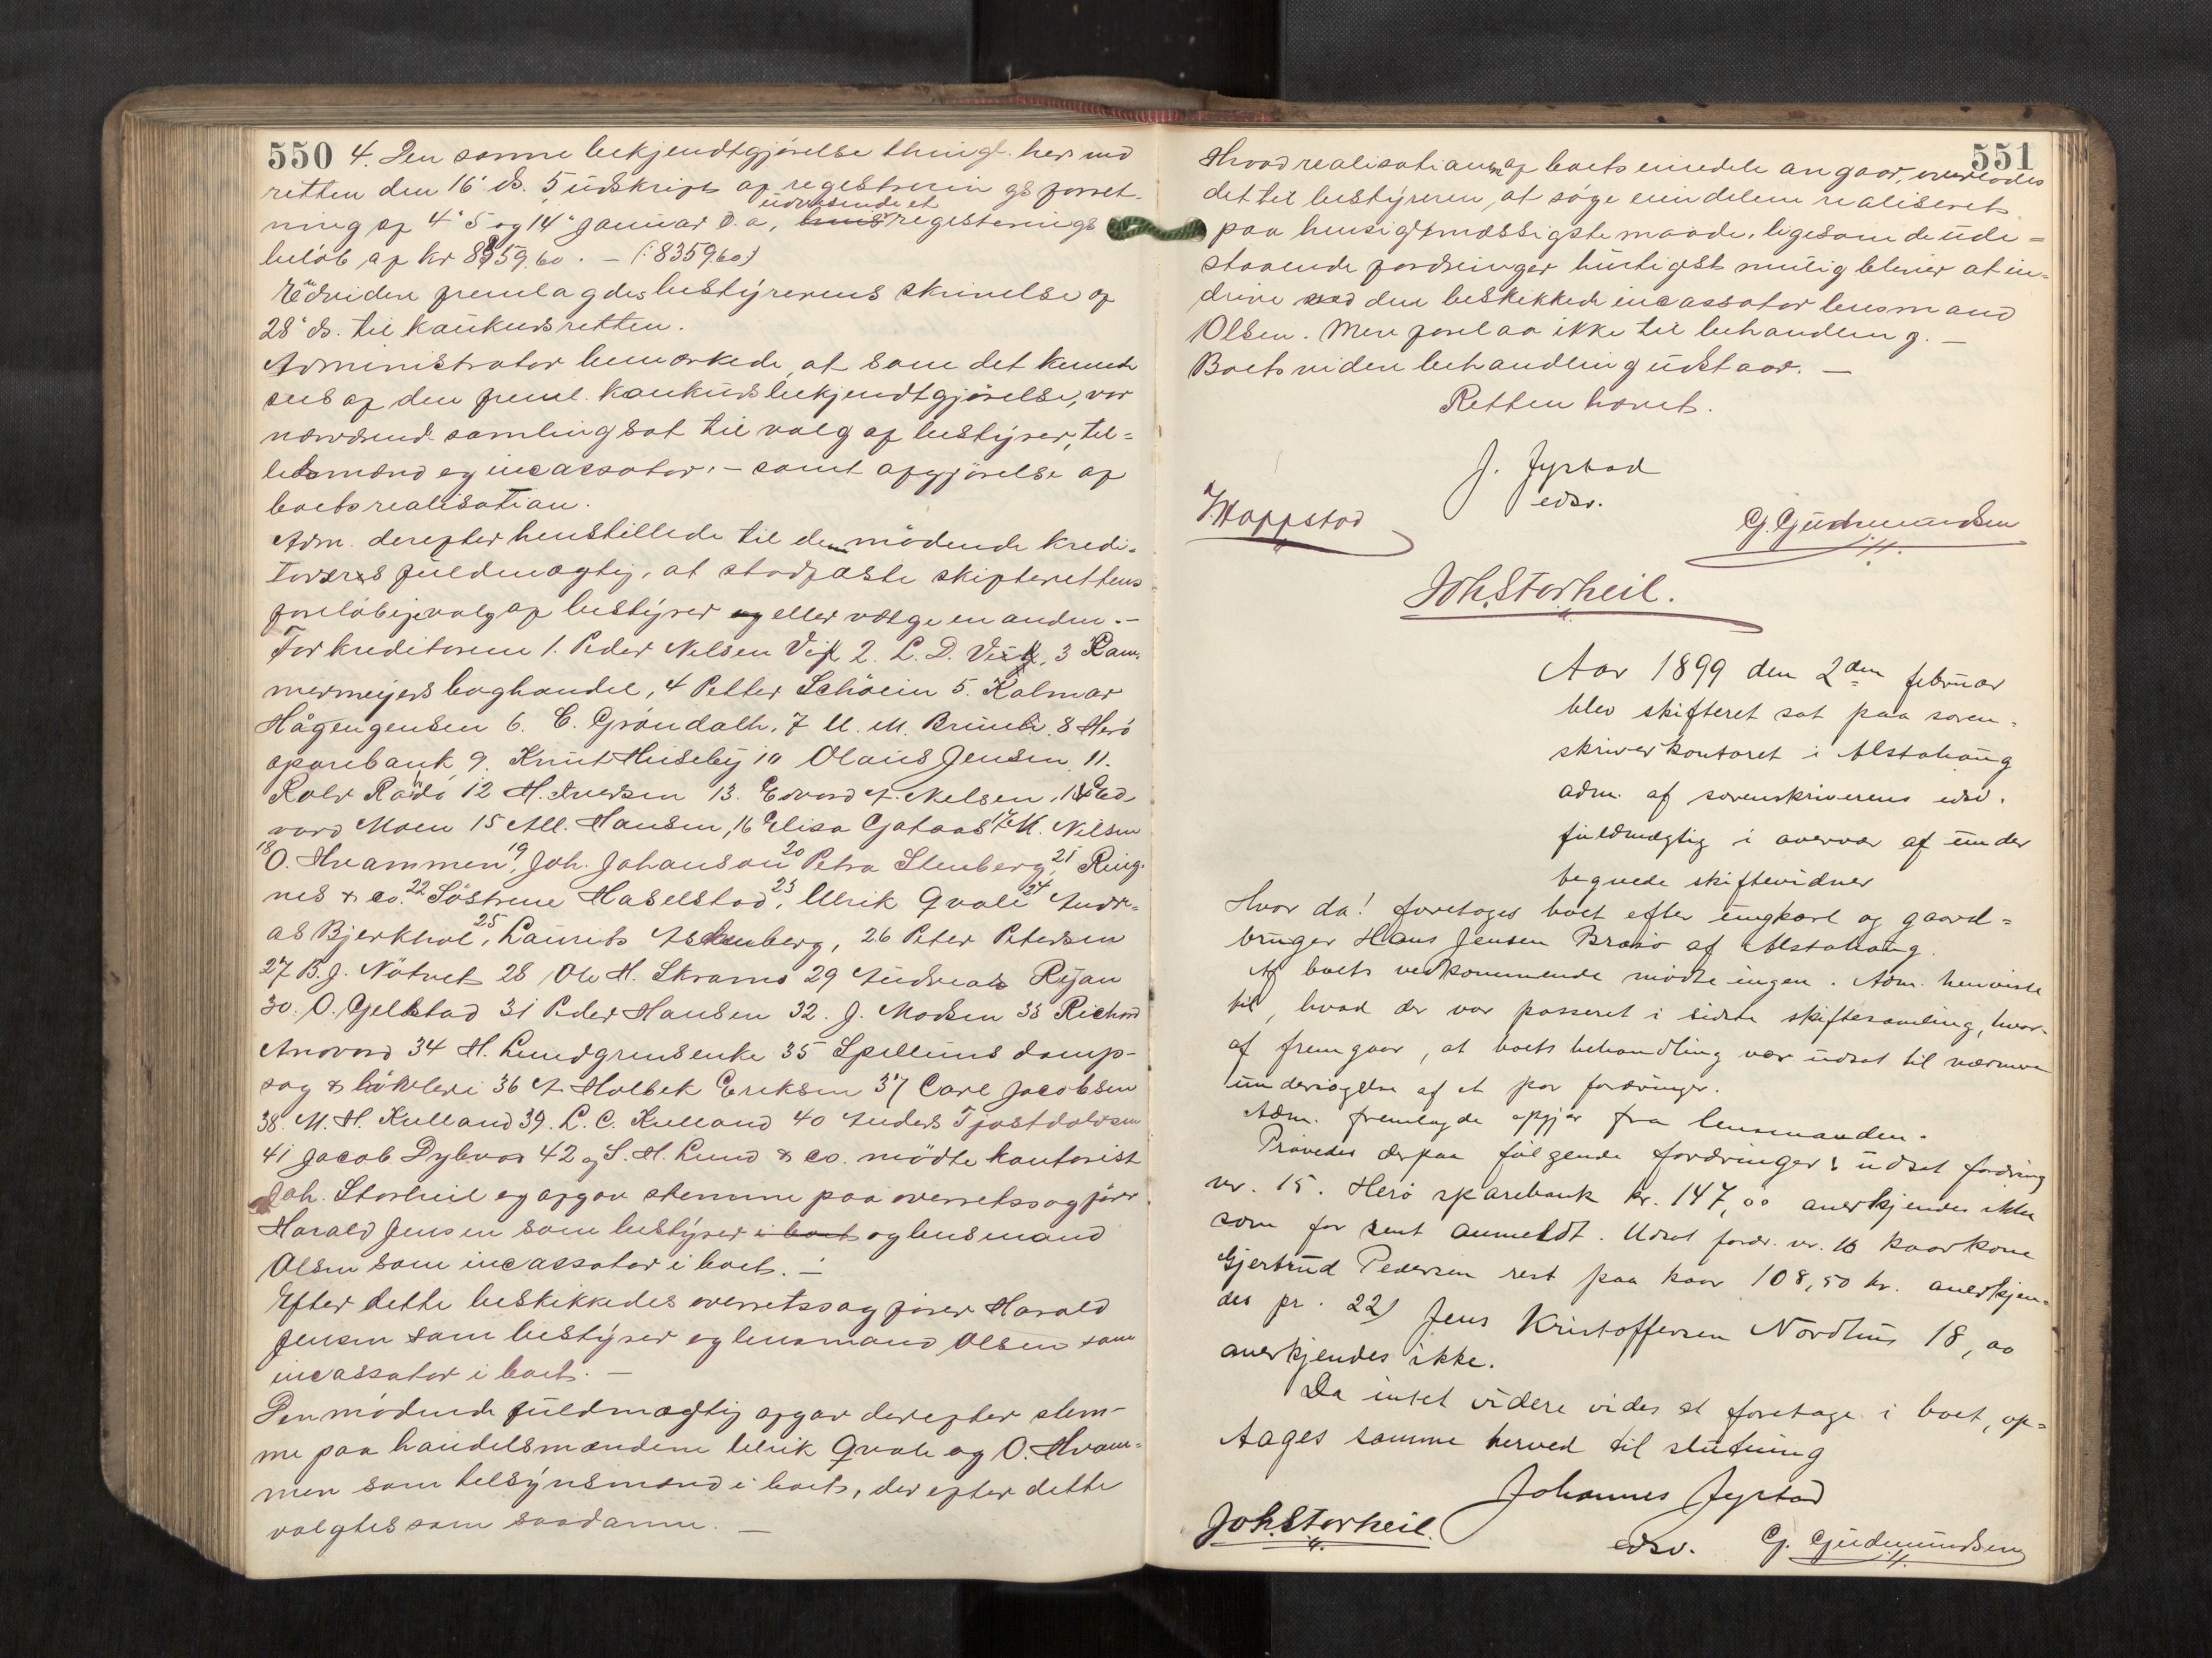 550
4. Den samme bekjendtgjørelse thingl. her ved
retten den 16' ds. 5, udskript af registrerin gs forret-
udvisende et
ning af 4' 5 og 14' Januar d. a, registerings
beløb af kr 8359.60. – (: 8359.60)
Endvidere fremlagdes bestyrerens skrivelse af
28' ds. til konkursretten.
Administrator bemærkede, at som det kunde
sees af den freml. konkursbekjendtgjørelse, var
nærværende samling sat til valg af bestyrer, til-
lidsmænd og incassator, – samt afgjørelse af
boets realisation.
Adm. derefter henstillede til den mødende kredi-
torers fuldmægtig, at stadfæste skifterettens
foreløbige valg af bestyrer og eller vælge en anden. –
For kreditorerne 1. Peder Nelsen Vik 2. L. D. Vik, 3 Kam-
mermeyers boghandel, 4 Petter Schöein 5. Kalmar
Hågengensen 6. C. Gröndalh, 7 M. M. Bruuli 8 Herö
sparebank 9. Knut Huseby 10 Olaus Jensen 11.
Rolv Rödö 12 H. Iversen 13. Edvard A. Nelsen, 14 Ed-
vard Moen 15 All. Hansen, 16 Elisa Gataas 17 M. Nilsen
18 O. Hvammen, 19 Joh. Johanson 20 Petra Stenberg, 21 Ring-
nes & co. 22 Söstrene Haselstad, 23 Ulrik Qvale 24 Andr-
as Bjerkhol, 25 Laurits Askenberg, 26 Peter Petersen
27 B. J. Nötvet 28 Ole H. Skramo 29 Andreas Ryan
30. O. Gjelstad 31 Peder Hansen 32. J. Madsen 33 Richard
Anovord 34 H. Lundgrens enke 35 Spillums damp-
sag & hövleri 36 A Holbek Eriksen 37 Carl Jacobsen
38. M. H. Kulland 39. L. C. Kulland 40 Anders Tjostdolvsen
41 Jacob Dybvad 42 og S. H. Lund & co. mödte kontorist
Joh. Storheil og afgav stemme paa overretssagförer
Harald Jensen som bestyrer i boet og lensmand
Olsen som incassator i boet. –
Efter dette beskikkedes overretssagförer Harald
Jensen som bestyrer og lensmand Olsen som
incassator i boet. –
Den mödende fuldmægtig afgav derefter stem-
me paa handelsmændene Ulrik Qvale og O. Hvam-
men som tilsynsmænd i boet, der efter dette
valgtes som saadanne. –
551
Hvad realisationen af boets eiendele angaar, overlodes
det til bestyreren, at söge eiendelene realiseret
paa hensigtsmæssigste maade, ligesom de ude-
staaende fordringer hurtigst mulig bliver at in-
drive ved den beskikkede incassator lensmand
Olsen. Mere forelaa ikke til behandling. –
Boets videre behandling udstaar. –
Retten hævet.
J. Jyrstad
edsv.
G. Gudmundsen
Joh. Storheil.
Aar 1899 den 2den februar
blev skifteret sat paa soren-
skriverkontoret i Alstahaug
adm. af sorenskriverens edsv.
fuldmægtig i overvær af under
tegnede skiftevidner
Hvor da! foretoges boet efter ungkarl og gaard-
bruger Hans Jensen Brasö af Alstahaug.
Af boets vedkommende mödte ingen. Adm. henviste
til, hvad der var passeret i sidste skiftesamling, hvor-
af fremgaar, at boets behandling var udsat til nærmere
undersögelse af et par fordringer.
Adm. fremlagde opgjör fra lensmanden.
Prövedes derpaa fölgende fordringer: udsat fordring
nr. 15. Herö sparebank kr. 147,00 anerkjendes ikke
som for sent anmeldt. Udsat fordr. nr. 16 kaarkone
Gjertrud Pedersen rest paa kaar 108,50 kr. anerkjen-
des pr. 22) Jens Kristoffersen Nordhus 18,00
anerkjendes ikke.
Da intet videre vides at foretage i boet, op-
tages samme herved til slutning
Johannes Jyrstad
Joh. Storheil.
edsv. G. Gudmundsen